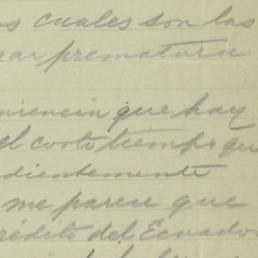 cuales son las
prematura
que hay
el corto tiempo qu
dientemente
me parece que
rédito del Ecuador